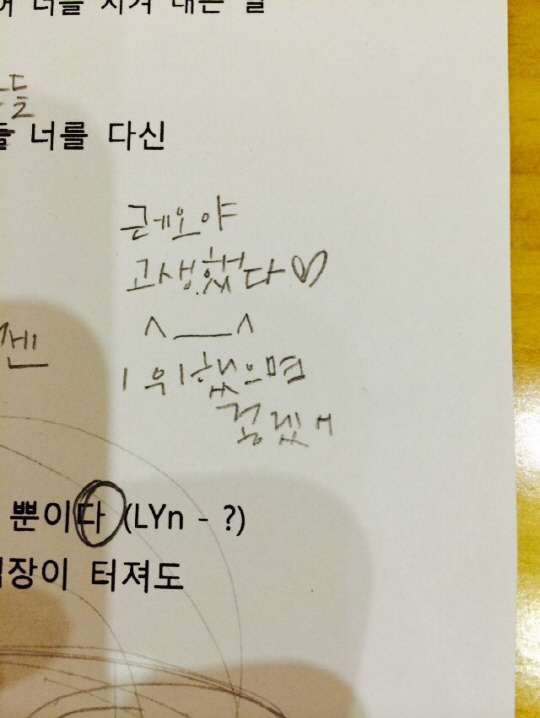 너를 지켜 내는 일
들
들 너를 다신
근데오야
고생했다♡
^__^
1위했으면
젠
좋겠ㅓ
뿐이다 (LYn - ?)
장이 터져도